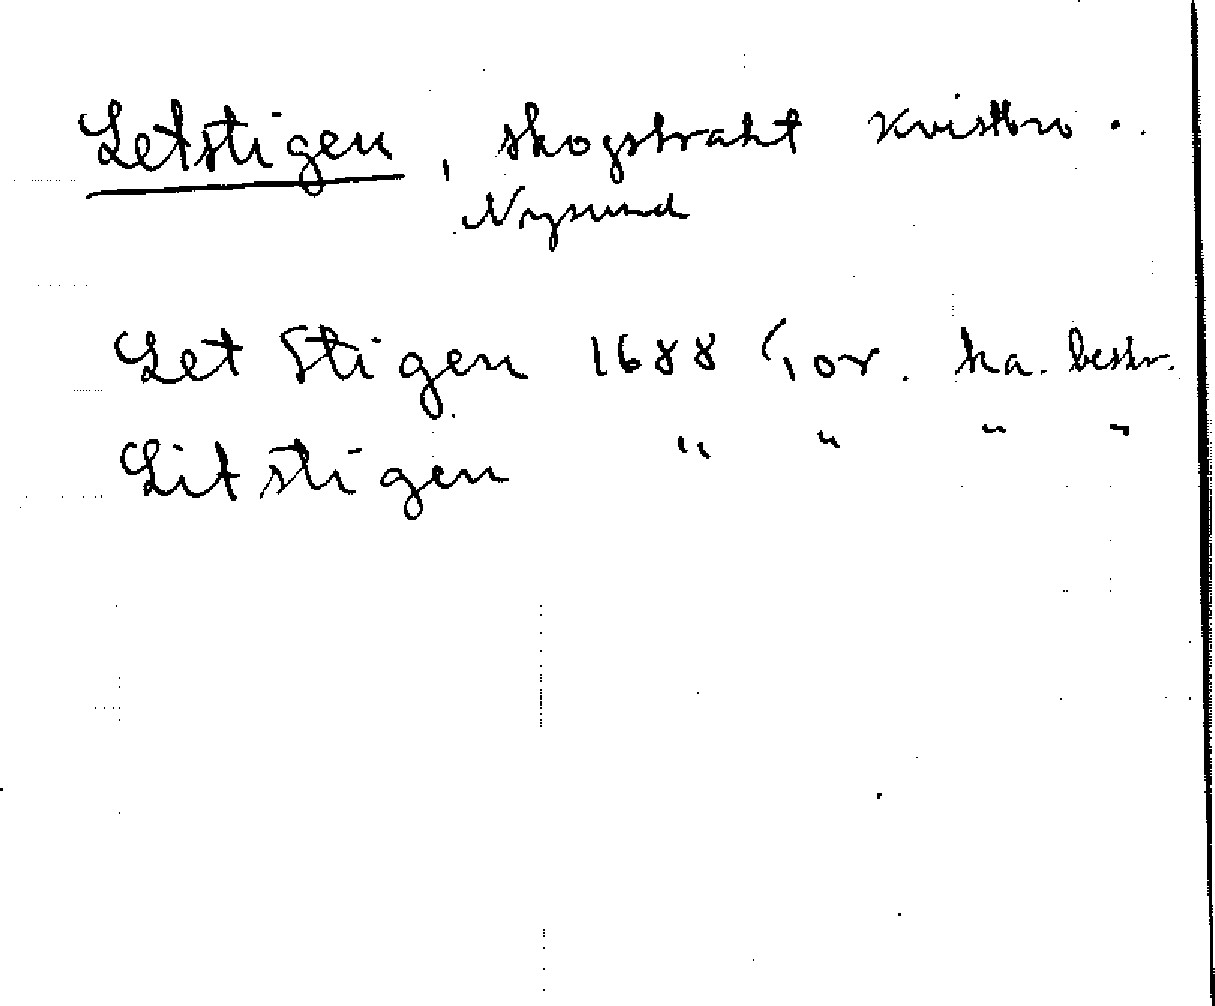 Letstigen, skogstrakt Kvistbro
Nysund
Let Stigen 1688 Gor. ka. beskr.
Litstigen " " " "